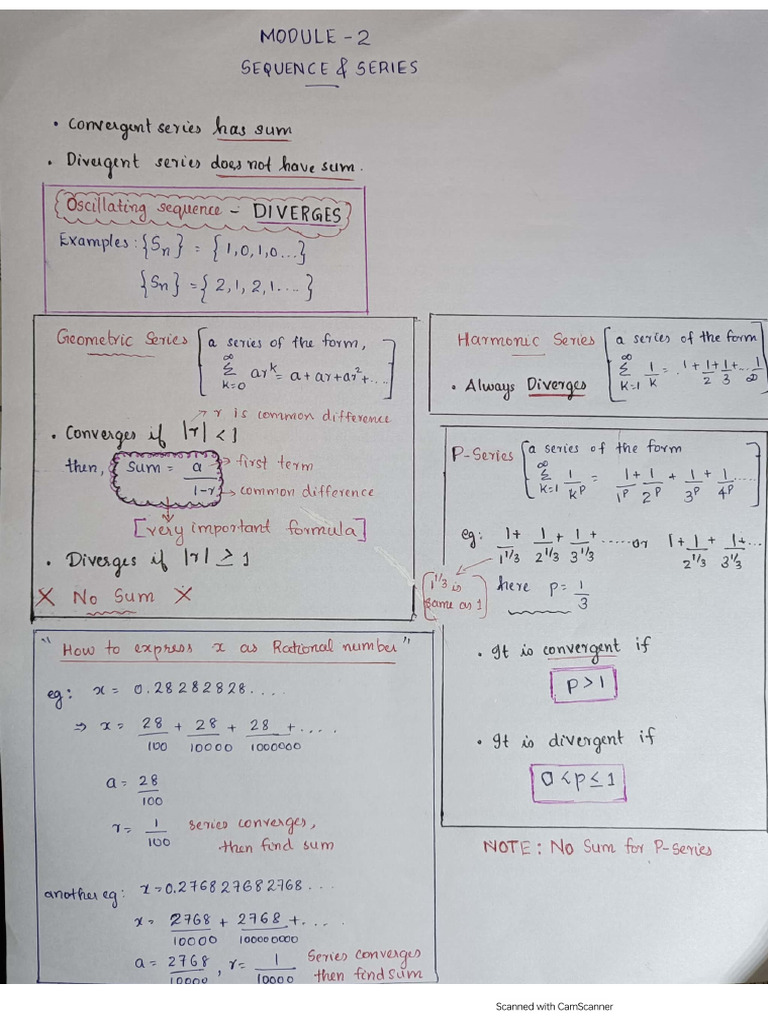 MODULE - 2
SEQUENCE & SERIES
• Convergent series has sum
• Divergent series does not have sum.
Oscillating sequence - DIVERGES
Examples: {Sn} = {1,0,1,0...}
{Sn} = {2,1,2,1....}
Geometric Series [a series of the form,
∞ Σ k=0 ar^k = a + ar + ar² + ....]
→ r is common difference
• Converges if |r| < 1
then, Sum = a/1-r → first term
→ common difference
[very important formula]
• Diverges if |r| ≥ 1
X No Sum X
Harmonic Series [a series of the form
∞ Σ k=1 1/k = 1 + 1/2 + 1/3 + ... 1/∞]
• Always Diverges
P-Series [a series of the form
∞ Σ k=1 1/k^p = 1/1^p + 1/2^p + 1/3^p + 1/4^p .....]
eg: 1/1^1/3 + 1/2^1/3 + 1/3^1/3 + ...... or 1 + 1/2^1/3 + 1/3^1/3 + ...
[1^1/3 is
same as 1]
here p = 1/3
• It is convergent if
p > 1
• It is divergent if
0 < p ≤ 1
NOTE: No Sum for P-series
"How to express x as Rational number"
eg: x = 0.28282828....
⇒ x = 28/100 + 28/10000 + 28/1000000 + ....
a = 28/100
r = 1/100 series converges,
then find sum
another eg: x = 0.276827682768...
x = 2768/10000 + 2768/100000000 + ....
a = 2768/10000, r = 1/10000 Series converges
then find sum
Scanned with CamScanner